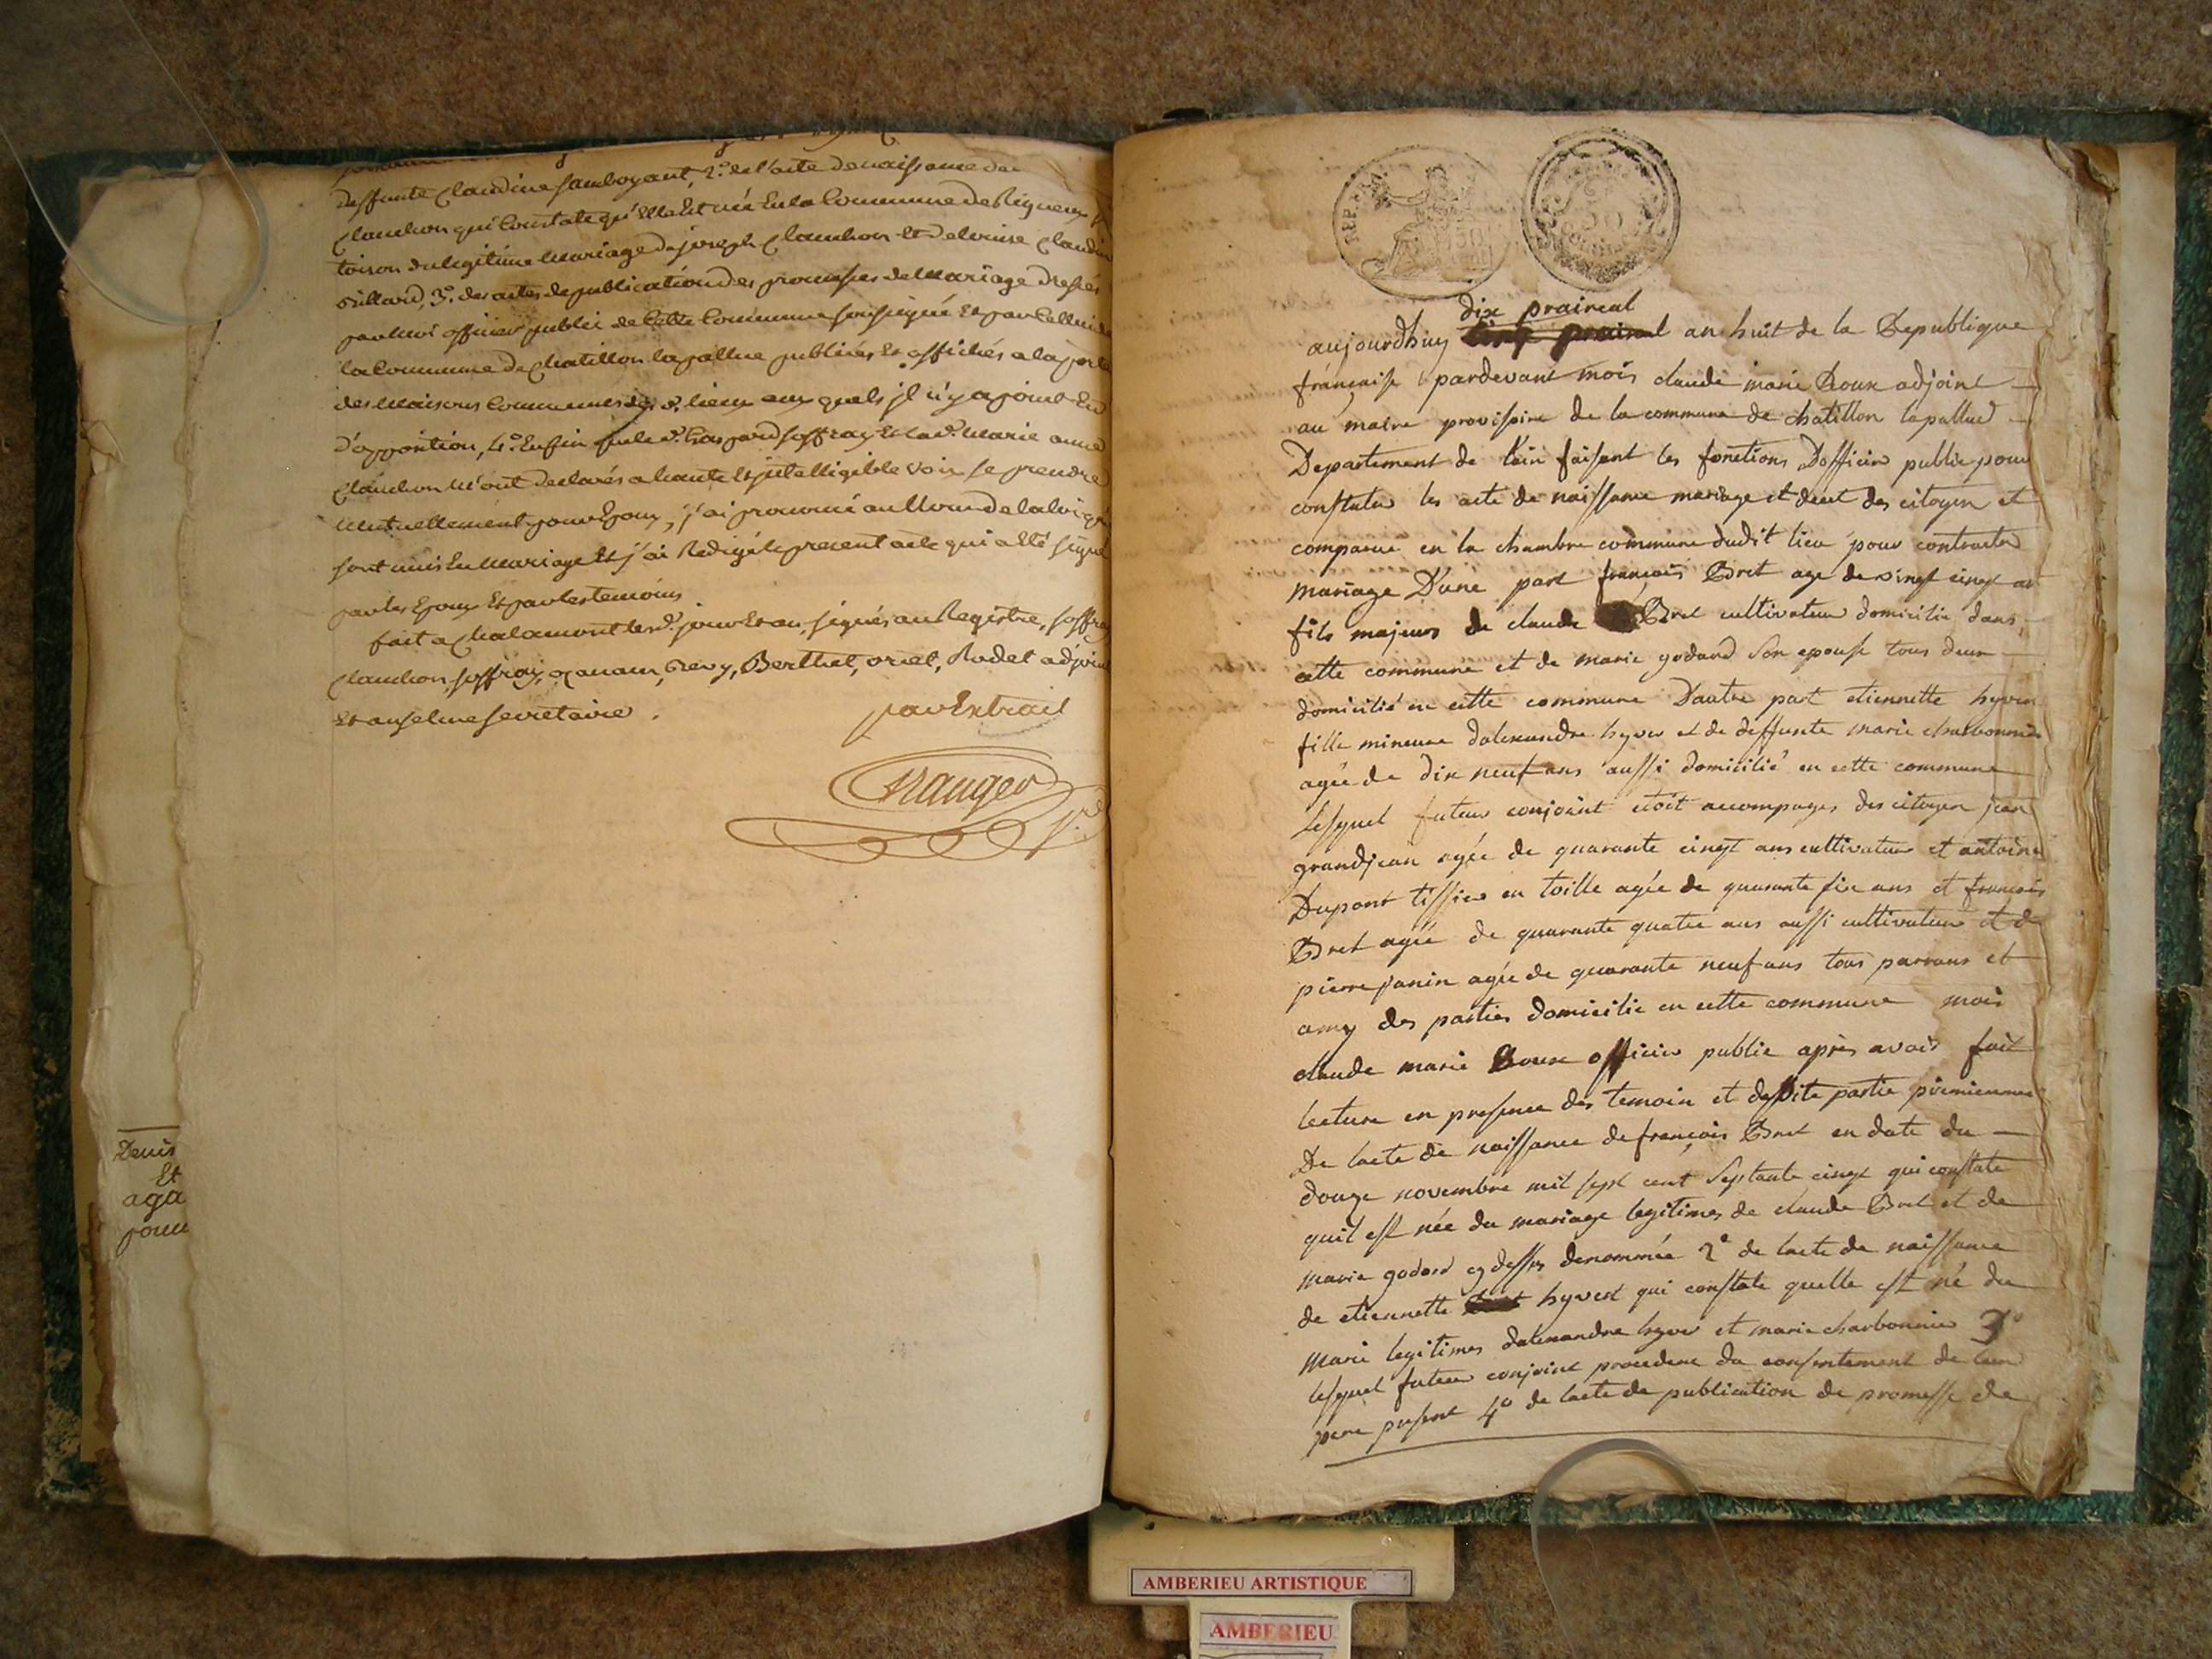 deffunte Claudine jamboyant, 2.° de l'acte de naissance de
Clauchon qui Constate qu'Elle Est née En la Commune de Rigneux
toison du legitime Mariage de joseph Clauchon et de louise Claudine
3.° des actes de publication des promesses de Mariage dressés
par Moi officier public de Cette Commune soussigné Et par Cellui de
la Commune de Chatillon lapallue publiés Et affichés a la porte
des Maisons Communes des d. lieux aux quels jl n'y a point Eu
d'opposition, 4.° Enfin que le d. Gaspard joffray Et la d. Marie anne
Clauchon M'ont declarés a haute Et jntelligible Voix se prendre
Mutuellement pour Epoux, j'ai prononcé au Nom de la loi qu'ils
sont unis En Mariage Et j'ai Redigé le present acte qui a Eté signé
par les Epoux Et par les temoins
fait a Chalamont les d. jour Et an, signés au Registre, joffray
Clauchon, joffray, Revy, Berthet, oriet, Rodet adjoint
Et anselme secretaire.
par Extrait
Denis
Et
aga
pour
REP. FRA.
dix praireal
aujourdhuy an huit de la Republique
française pardevant mois claude marie Roux adjoint
au maire provisoire de la commune de chatillon lapallud
Departement de l'ain faisant les fonctions Dofficier public pour
constater les acte de naissance mariage et décet des citoyen et
comparue en la chambre commune dudit lieu pour contracter
mariage D'une part françois Bret age de vingt cinq an
fils majeurs de claude Bret cultivateur domicilie dans
cette commune et de marie godard son epouse tous deux
domicilié en cette commune D'autre part etiennette hyver
fille mineure dalexandre hyver et de deffunte marie charbonnier
agée de dix neuf ans aussi domicilié en cette commune
Lesquel futeur conjoint etoit accompagés des citoyen jean
grandjean agée de quarante cinq ans cultivateur et antoine
Dupont tissier en toille agée de quarante six ans et francois
Bret agée de quarante quatre ans aussi cultivateur et de
pierre janin agée de quarante neuf ans tous parrans et
amy des parties domicilie en cette commune mois
claude marie Roux officier public après avoir fait
lecture en presence des temoin et desdite partie premierement
De lacte de naissance de françois Bret en date du
douze novembre mil sept cent septante cinq qui constate
quil est née du mariage legitimes de claude Bret et de
marie godard cy dessus denommée 2° de lacte de naissance
de etiennette hyvert qui constate quelle est né du
marie legitimes dalexandre hyver et marie charbonnier 3°
lesquel futeur conjoint procedent du consentement de leur
pere present 4° de lacte de publication de promesse de
AMBERIEU ARTISTIQUE
AMBERIEU